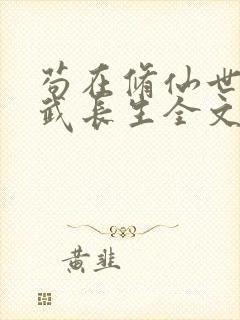 苟在脩仙世
武长生全文
黄韭